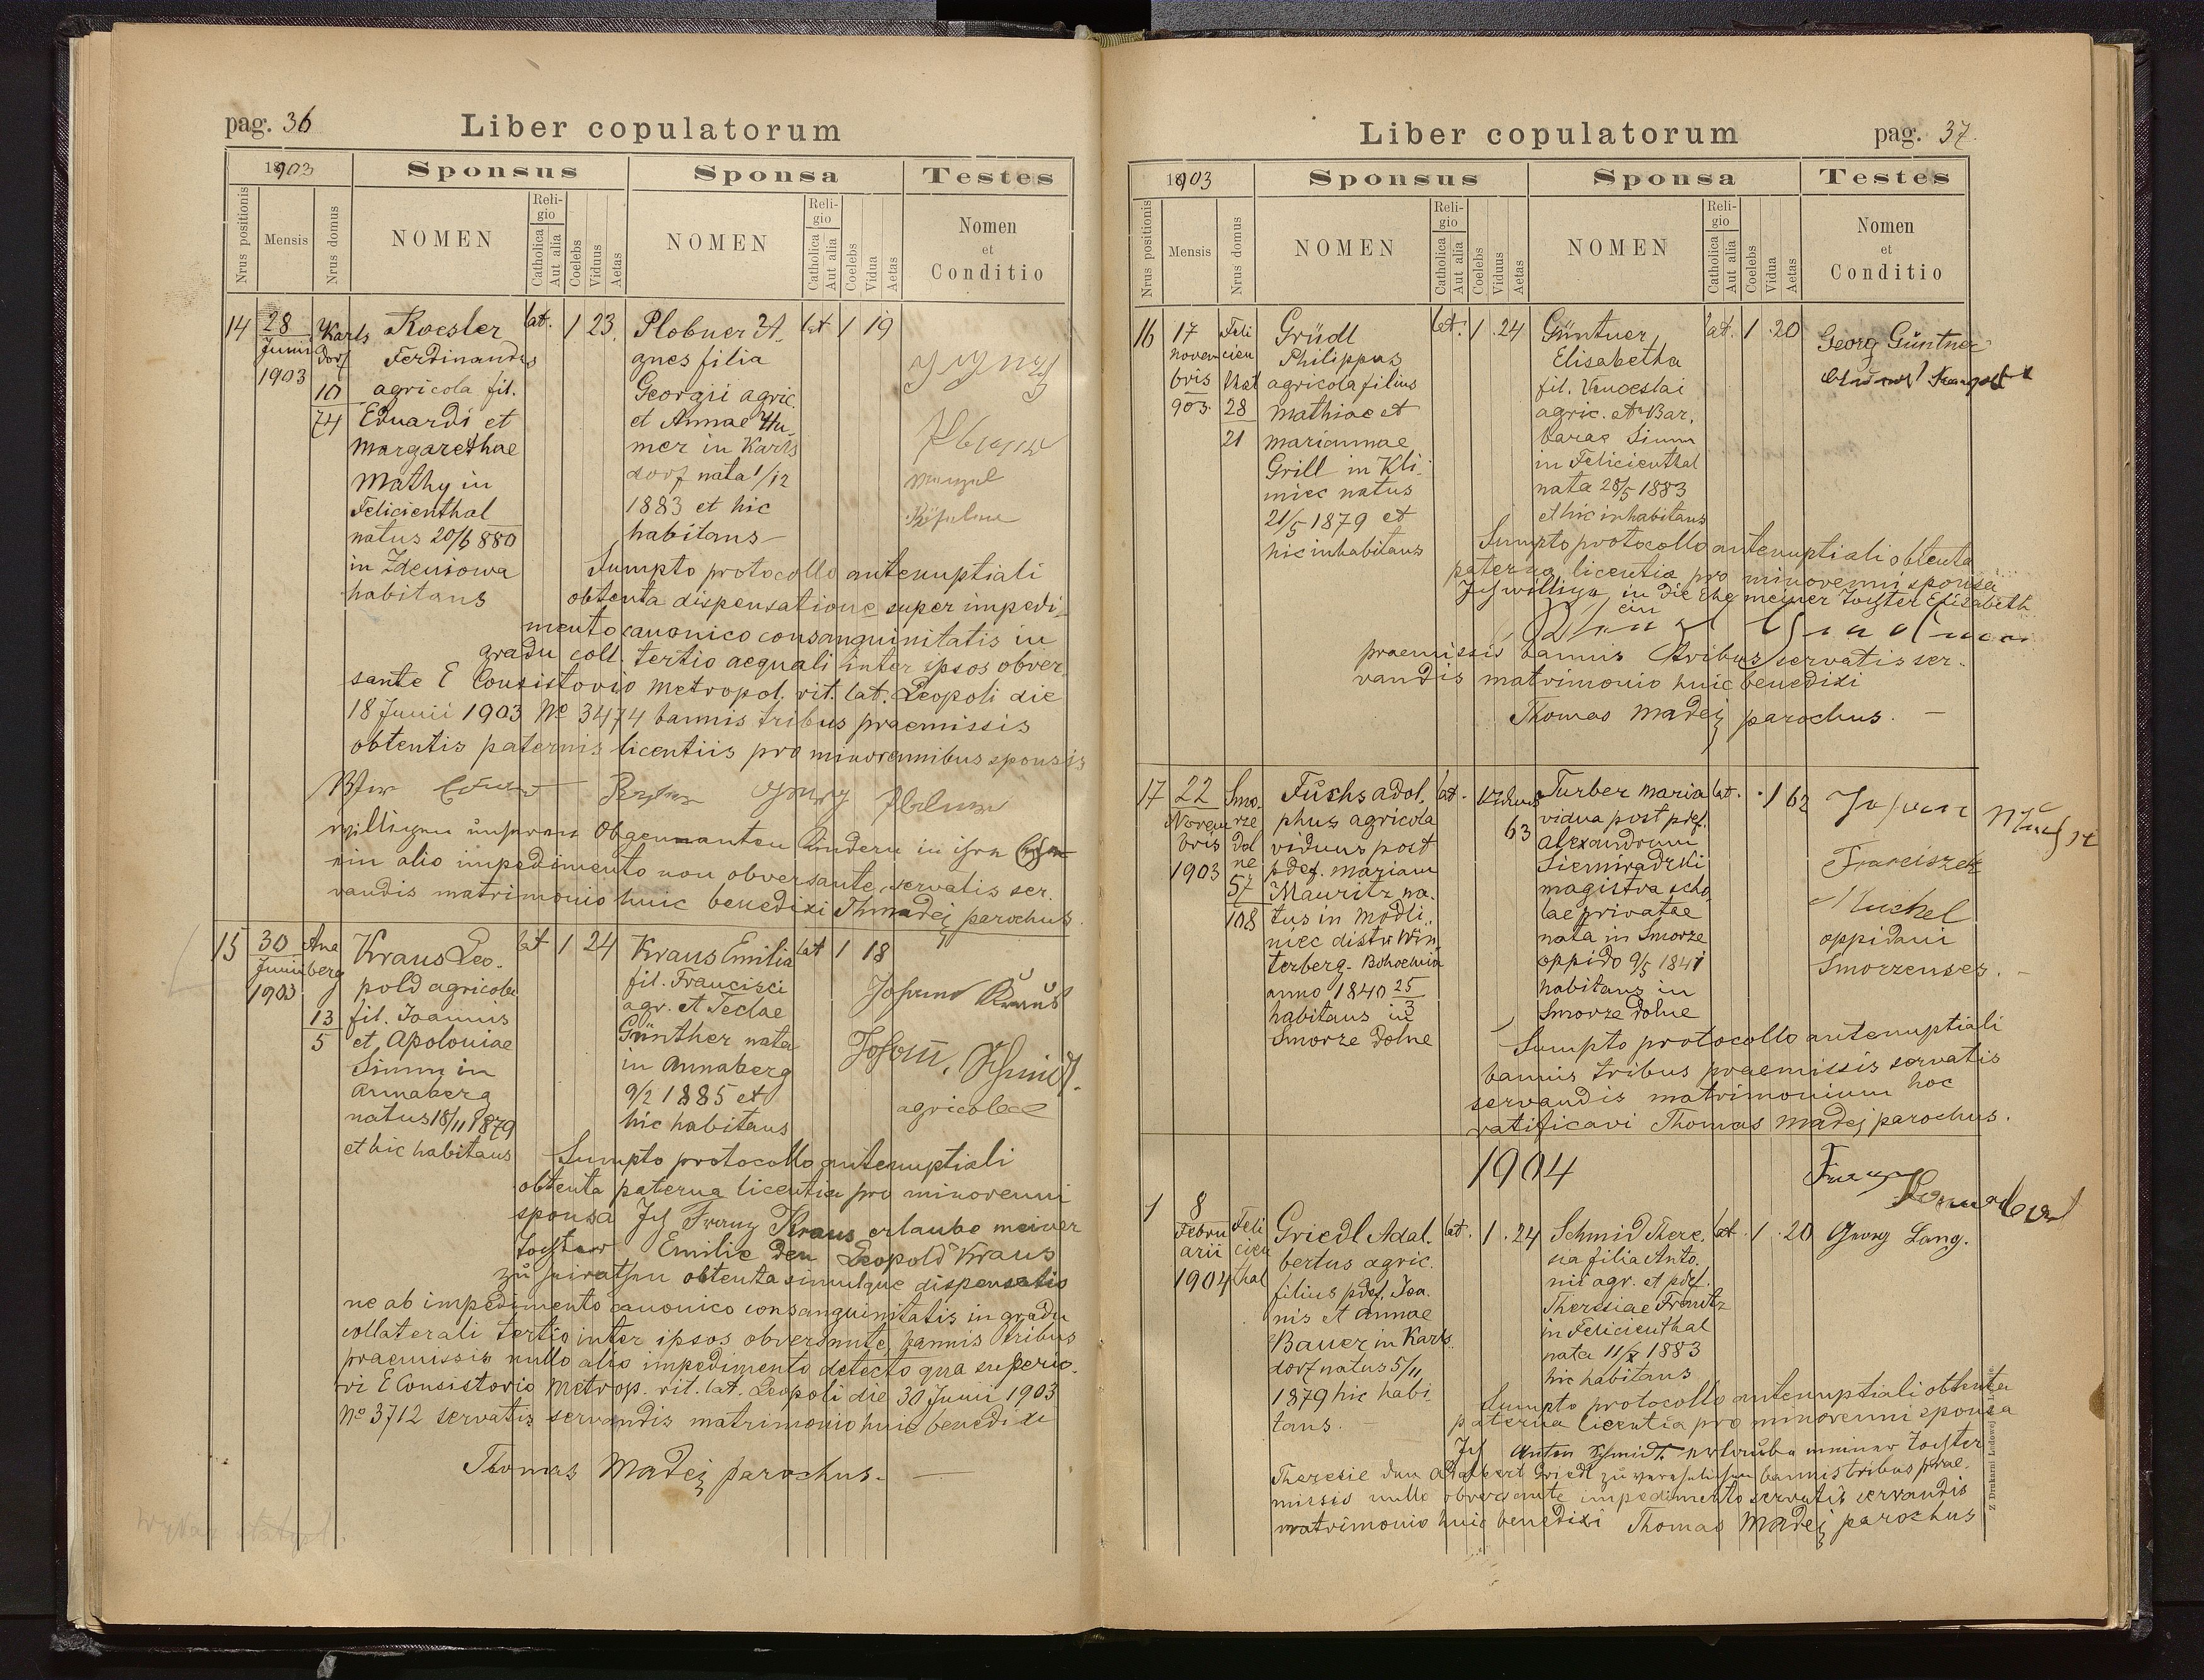 pag. 36
Liber copulatorum
1903
Sponsus
Sponsa
Testes
Nrus positionis
Mensis
Nrus domus
NOMEN
Religio
Catholica
Aut alia
Coelebs
Viduus
Aetas
NOMEN
Religio
Catholica
Aut alia
Coelebs
Vidua
Aetas
Nomen
et
Conditio
14
28
Junii
1903
Karls
dorf
10
74
Koesler
Ferdinandus
agricola fil.
Eduardi et
Margarethae
Mathy in
Felicienthal
natus 20/6 880
in Zdeniowa
habitans
lat. 1 23.
Plobner A.
gnes filia
Georgii agric.
et Annae Hu-
mer in Karls
dorf nata 1/12
1883 et hic
habitans
lat 1 19
Sumpto protocollo antenuptiali
obtenta dispensatione super impedi-
mento canonico consanguinitatis in
gradu coll. tertio aequali inter ipsos obver
sante E Consistorio Metropol. rit. lat. Leopoli die
18 Junii 1903 No 3474 bannis tribus praemissis
obtentis paternis licentiis pro minorennibus sponsis
Wir
willigen unseren Obgennanten Kindern in ihre Ehe
ein alio impedimento non obversante, servatis ser.
vandis matrimonio huic benedixi Th Madej parochus.
15
30
Junii
1903
Ana
berg
13
5
Kraus Leo.
pold agricola
fil. Joannis
et Apoloniae
Simm in
Annaberg
natus 18/11 1879
et hic habitans
lat 1 24
Kraus Emilia
fil. Francisci
agr. et Teclae
Günther nata
in Annaberg
9/2 1885 et
hic habitans
lat 1 18
Johann Kraus
Johann Schmidt.
agricolae
Sumpto protocollo antenuptiali
obtenta paterna licentia pro minorenni
sponsa Ich Franz Kraus erlaube meiner
Tochter Emilie den Leopold Kraus
zu heirathen obtenta simulque dispensatio
ne ab impedimento canonico consanguinitatis in gradu
collaterali tertio inter ipsos obversante, bannis tribus
praemissis nullo alio impedimento detecto qua superio-
ri E Consistorio Metrop. rit. lat. Leopoli die 30 Junii 1903
No 3712 servatis servandis matrimonio huic benedixi
Thomas Madej parochus.
Liber copulatorum
pag. 37.
1903
Sponsus
Sponsa
Testes
Nrus positionis
Mensis
Nrus domus
NOMEN
Religio
Catholica
Aut alia
Coelebs
Viduus
Aetas
NOMEN
Religio
Catholica
Aut alia
Coelebs
Vidua
Aetas
Nomen
et
Conditio
16
17
Novem
bris
903.
Feli
cien
thal
28
21
Grüdl
Philippus
agricola filius
Mathiae et
Mariannae
Grill in Kli-
miec natus
21/5 1879 et
hic inhabitans
lat. 1 . 24
Güntner
Elisabetha
fil. Venceslai
agric. et Bar.
barae Simm
in Felicienthal
nata 28/5 1883
et hic inhabitans
lat. 1 . 20
Georg Güntner
Sumpto protocollo antenuptiali obtenta
paterna licentia pro minorenni sponsa
Ich willige in die Ehe meiner Tochter Elisabeth
ein
praemissis bannis tribus servatis ser.
vandis matrimonio huic benedixi
Thomas Madej parochus.
17
22
Novem
bris
1903
Smo.
rze
dol
ne
57
108
Fuchs Adol.
phus agricola
viduus post
pdef. Mariam
Mauritz na.
tus in Modli.
niec distr Win
terberg - Bohoemia
anno 1840 25/3
habitans in
Smorze dolne
lat. Viduus 63
Turber Maria
vidua post pdef.
Alexandrum
Siemiradzki
magistra scho.
lae privatae
nata in Smorze
oppido 9/5 1841
habitans in
Smorze dolne
lat. . 1 62
Franciszek
Muchel
oppidani
Smorzenses.
Sumpto protocollo antenuptiali
bannis tribus praemissis servatis
servandis matrimonium hoc
ratificavi Thomas Madej parochus.
1904
1
8
Febru
arii
1904
Feli
cien
thal
Griedl Adal.
bertus agric.
filius pdef. Joa.
nis et Annae
Bauer in Karls.
dorf natus 5/11
1879 hic habi.
tans.
lat. 1 . 24
Schmid There.
sia filia Anto.
nii agr. et pdef.
Theresiae Frantz
in Felicienthal
nata 11/X 1883
hic habitans
lat . 1 . 20
Georg Lang.
Sumpto protocollo antenuptiali obtenta
paterna licentia pro minorenni sponsa
Ich Anton Schmidt erlaube meiner Tochter
Theresie den Adalbert Griedl zu verehelichen bannis tribus prae.
missis nullo obversante impedimento servatis servandis
matrimonio huic benedixi Thomas Madej parochus